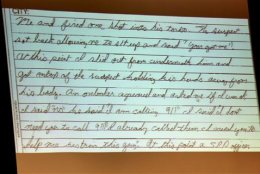 CITY:
me and fired one shot into his torso. The suspect
sat back allowing me to sit up and said "you got me".
At this point I slid out from underneath him and
got control of the suspect holding his hands away from
his body. An onlooker appeared and asked me if I was ok
I said no! he said I am calling 911 I said I don't
need you to call 911 I already called them I need you to
help me restrain this guy. At this point a S.P.D officer